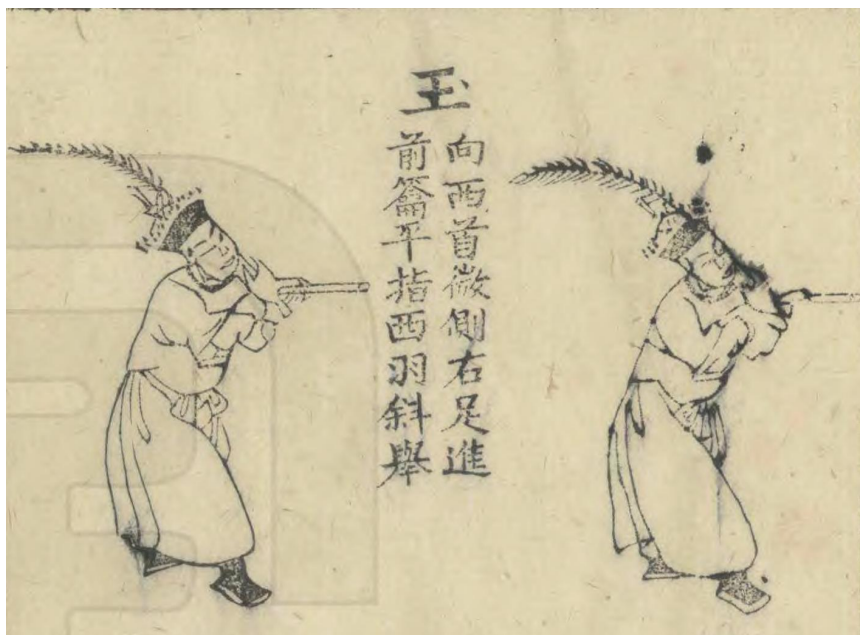 玉
向西首微側右足進
前籥平指西羽斜舉